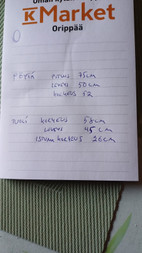 K Market
Orippää
PÖYTÄ PITUUS 75cm
LEVEYS 50cm
KORKEUS 52
KORKEUS 58cm
LEVEYS 45cm
ISTUIN KORKEUS 26cm